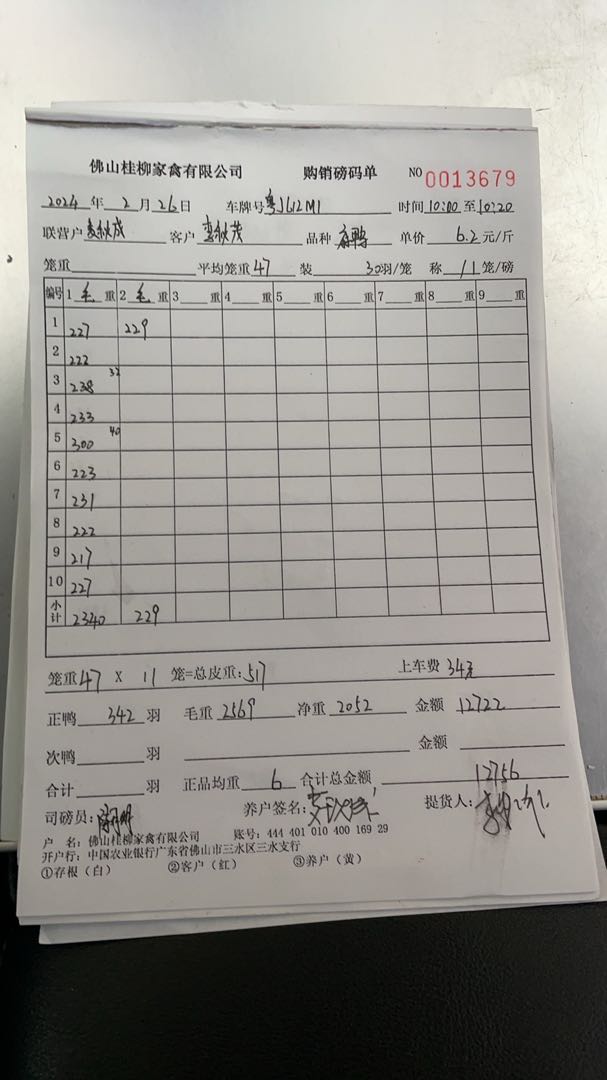 佛山桂柳家禽有限公司 购销磅码单 NO 0013679
2024 年 2 月 26 日 车牌号 粤J612M1 时间 10:00 至 10:20
联营户 客户 品种 麻鸭 单价 6.2 元/斤
笼重 平均笼重 47 装 30 羽/笼 称 11 笼/磅
编号 1 毛 重 2 毛 重 3 重 4 重 5 重 6 重 7 重 8 重 9 重
1 227 229
2 222
3 238 32
4 233
5 300 40
6 223
7 231
8 222
9 217
10 227
小计 2340 229
笼重 47 X 11 笼=总皮重: 517 上车费 34元
正鸭 342 羽 毛重 2569 净重 2052 金额 12722
次鸭 羽 金额
合计 羽 正品均重 6 合计总金额 12756
司磅员: 养户签名: 提货人:
户 名: 佛山桂柳家禽有限公司 账号: 444 401 010 400 169 29
开户行: 中国农业银行广东省佛山市三水区三水支行
①存根（白） ②客户（红） ③养户（黄）